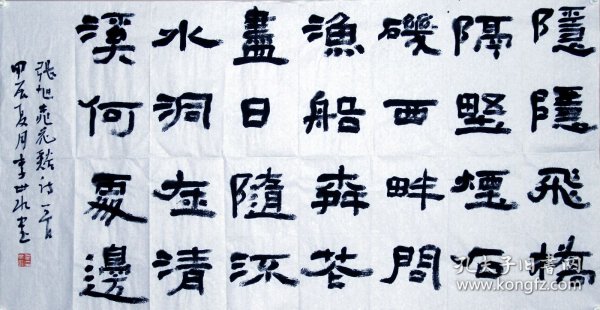 隱隱飛橋
隔野煙石
磯西畔問
漁船桃花
盡日隨流
水洞在清
溪何處邊
張旭桃花谿詩一首
甲辰夏月李世書
孔夫子旧书网
www.kongfz.com